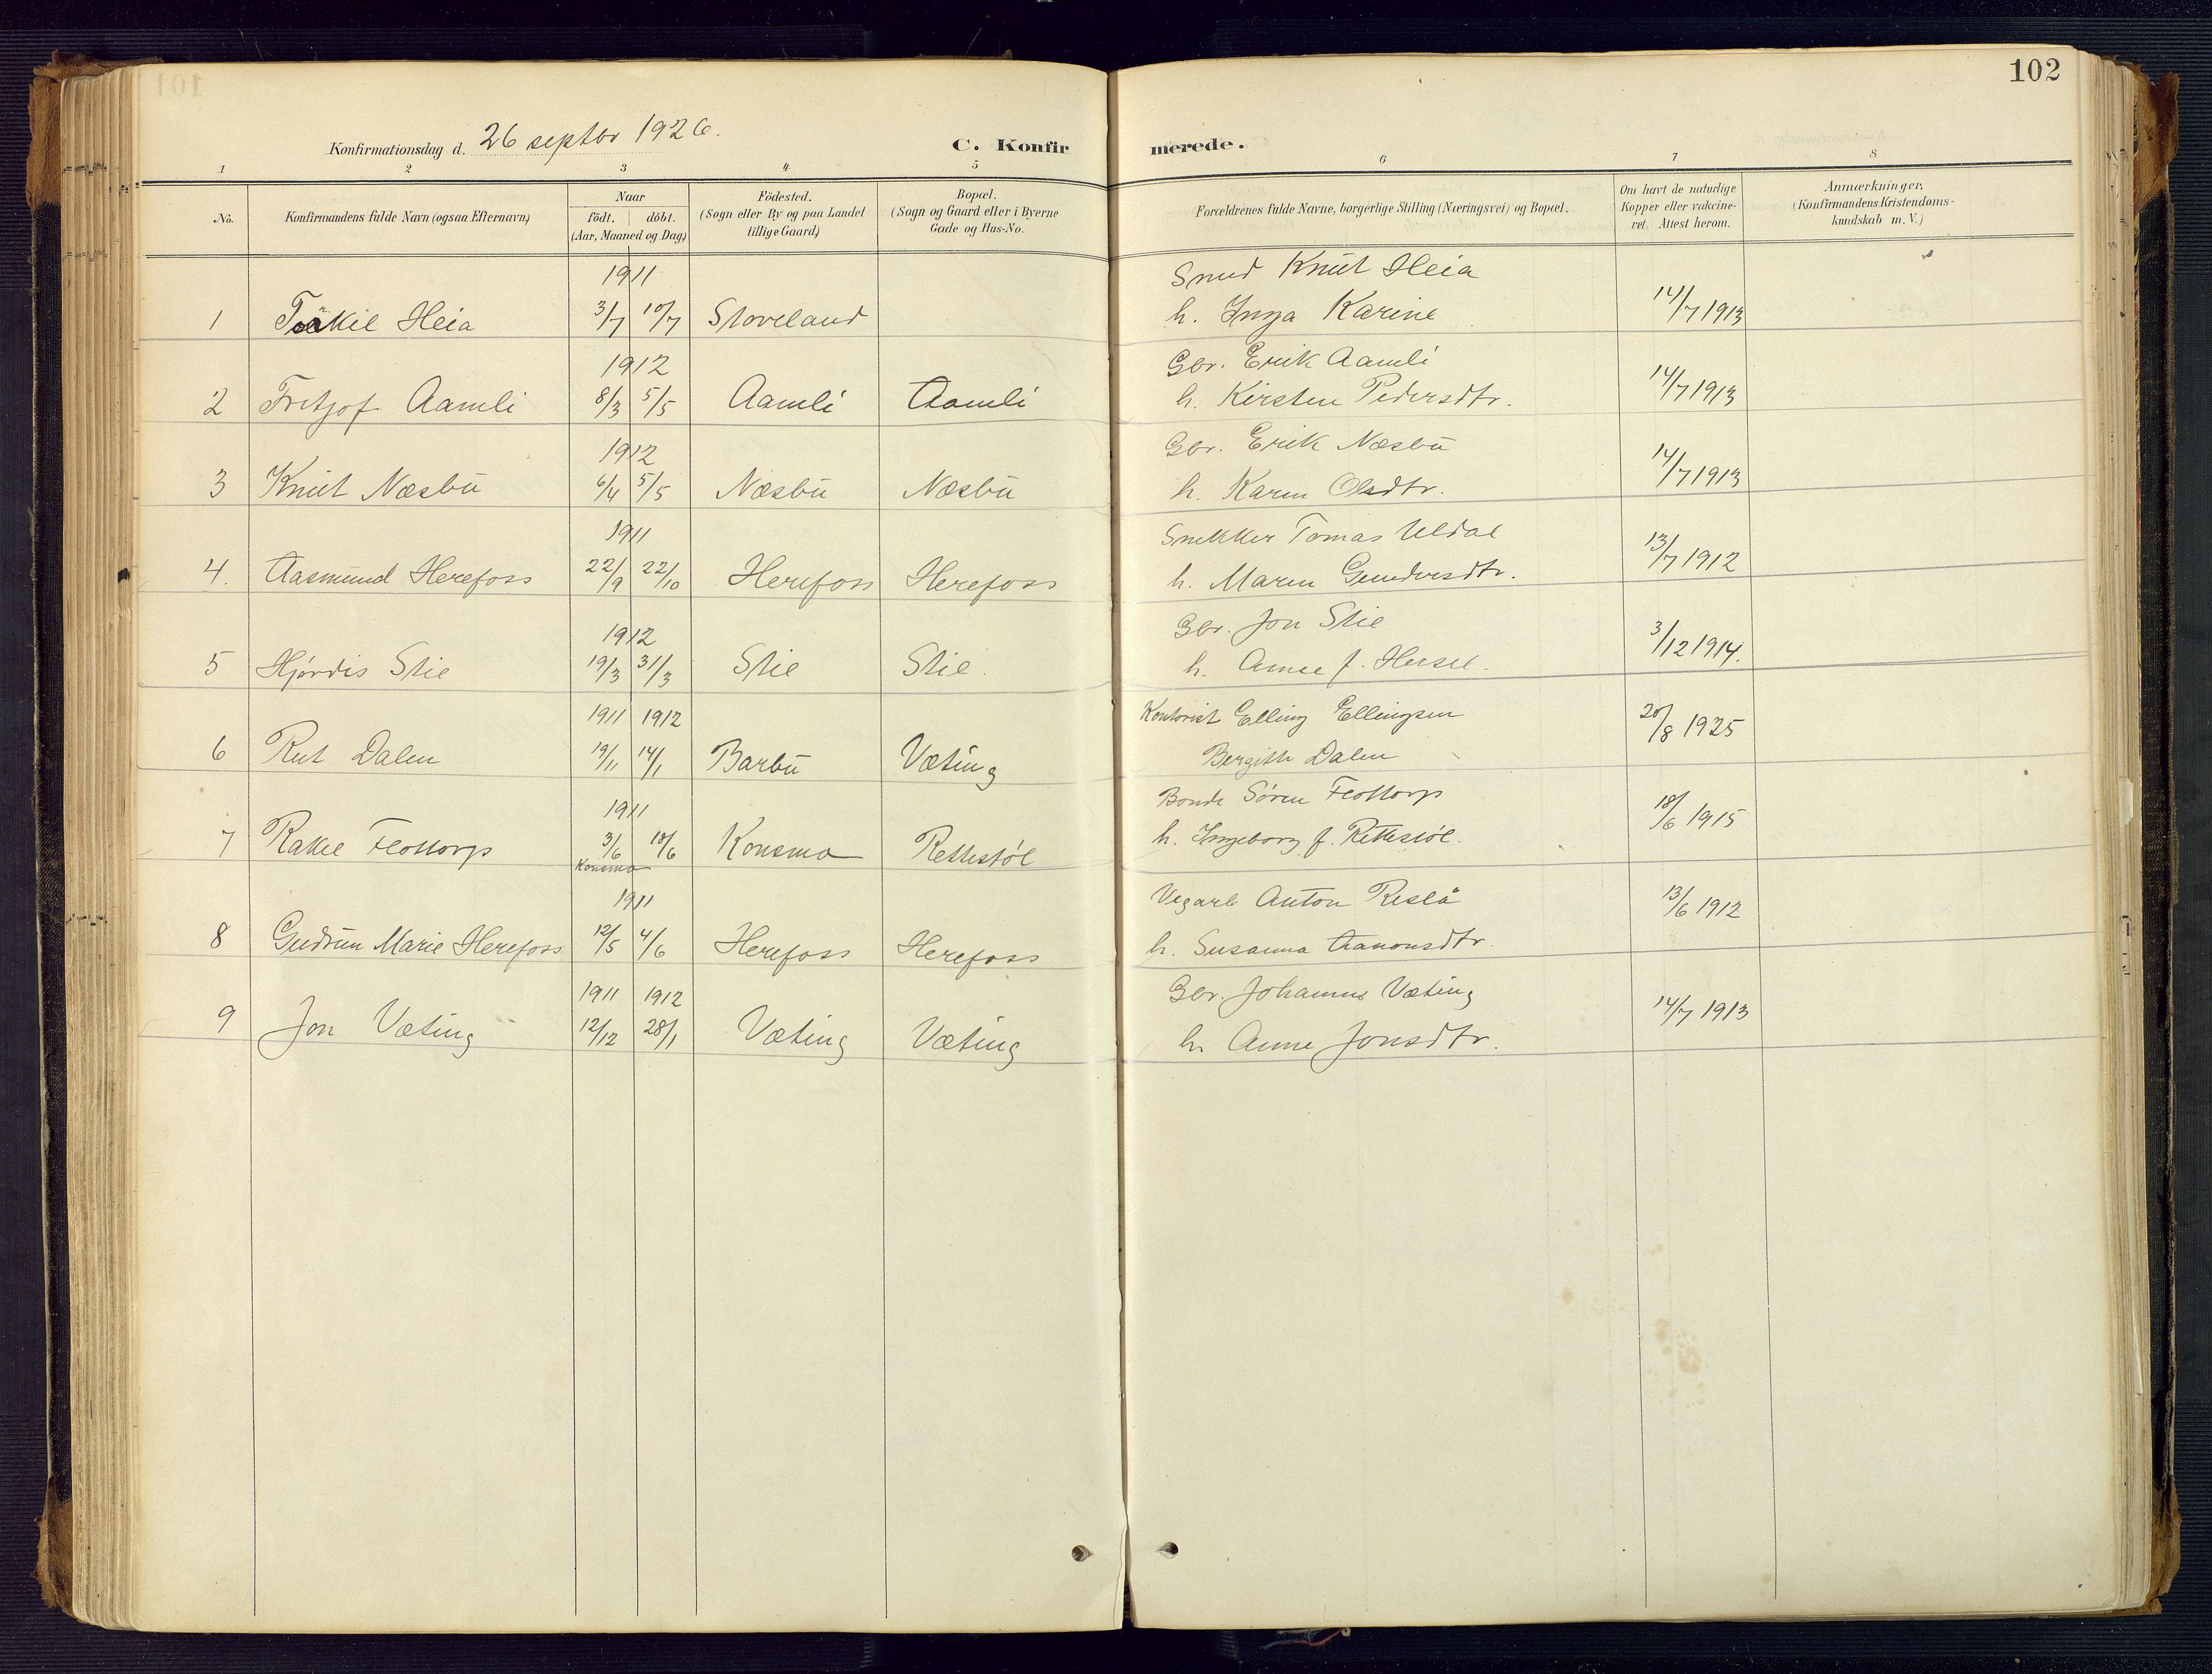 102
Konfirmationsdag d. 26 septbr 1926.
C. Konfirmerede.
1 2 3 4 5 6 7 8
No.
Konfirmandens fulde Navn (ogsaa Efternavn)
Naar
födt. döbt.
(Aar, Maaned og Dag)
Födested.
(Sogn eller By og paa Landet
tillige Gaard)
Bopæl.
(Sogn og Gaard eller i Byerne
Gade og Hus-No.
Forældrenes fulde Navne, borgerlige Stilling (Næringsvei) og Bopæl.
Om havt de naturlige
Kopper eller vakcine-
ret. Attest herom.
Anmærkninger.
(Konfirmandens Kristendoms-
kundskab m. V.)
1911 Smed Knut Heia
1 Heia 3/7 10/7 Stoveland h. Inga Karine 14/7 1913
1912 Gbr. Erik Aamli
2 Fritjof Aamli 8/3 5/5 Aamli Aamli h. Kirsten Pedersdtr. 14/7 1913
1912 Gbr. Erik Næsbu
3 Knut Næsbu 6/4 5/5 Næsbu Næsbu h. Karen Olsdtr. 14/7 1913
1911 Snekker Tomas Uldal
4. Aasmund Herefoss 22/9 22/10 Herefoss Herefoss h. Maren Gundersdtr. 13/7 1912
1912 Gbr. Jon Stie
5 Hjørdis Stie 19/3 31/3 Stie Stie. h. Anne f. 3/12 1914.
1911 1912 Kontorist Elling Ellingsen
6 Rut Dalen 19/11 14/1 Barbu Væting Bergithe Dalen 20/8 1925
1911 Bonde Søren Flottorp
7 Rakel Flottorp 3/6 18/6 Konsmo Rettestøl h. Ingeborg f. Rettestøl. 18/6 1915
Konsmo
1911 Vegarb Anton Reslå
8 Gudrun Marie Herefoss 12/5 4/6 Herefoss Herefoss h. Susanna Aanonsdtr. 13/6 1912
1911 1912 Gbr. Johannes Væting
9 Jon Væting 12/12 28/1 Væting Væting h. Anne Jonsdtr. 14/7 1913